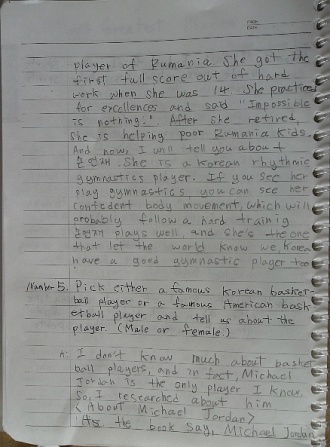 player of Rumania She got the
first full score out of hard
work when she was 14. She practiced
for excellences and said "Impossible
is nothing." After she retired,
she is helping poor Rumania Kids.
And now, I will tell you about
She is a Korean rhythmic
gymnastics player. If you see her
play gymnastics you can see her
confedent body movement, which will
probably follow a hard trainig
plays well, and she's the one
that let the world know we, Korea
have a good gymnastic player too
Number 5. Pick either a famous korean basket-
ball player or a famous American bask-
etball player and tell us about the
player. (Male or female.)
A: I don't know much about basket
ball players, and in fact, Michael
Jordan is the only player I know.
So, I researched about him
<About Michael Jordan>
As the book say, Michael Jordan